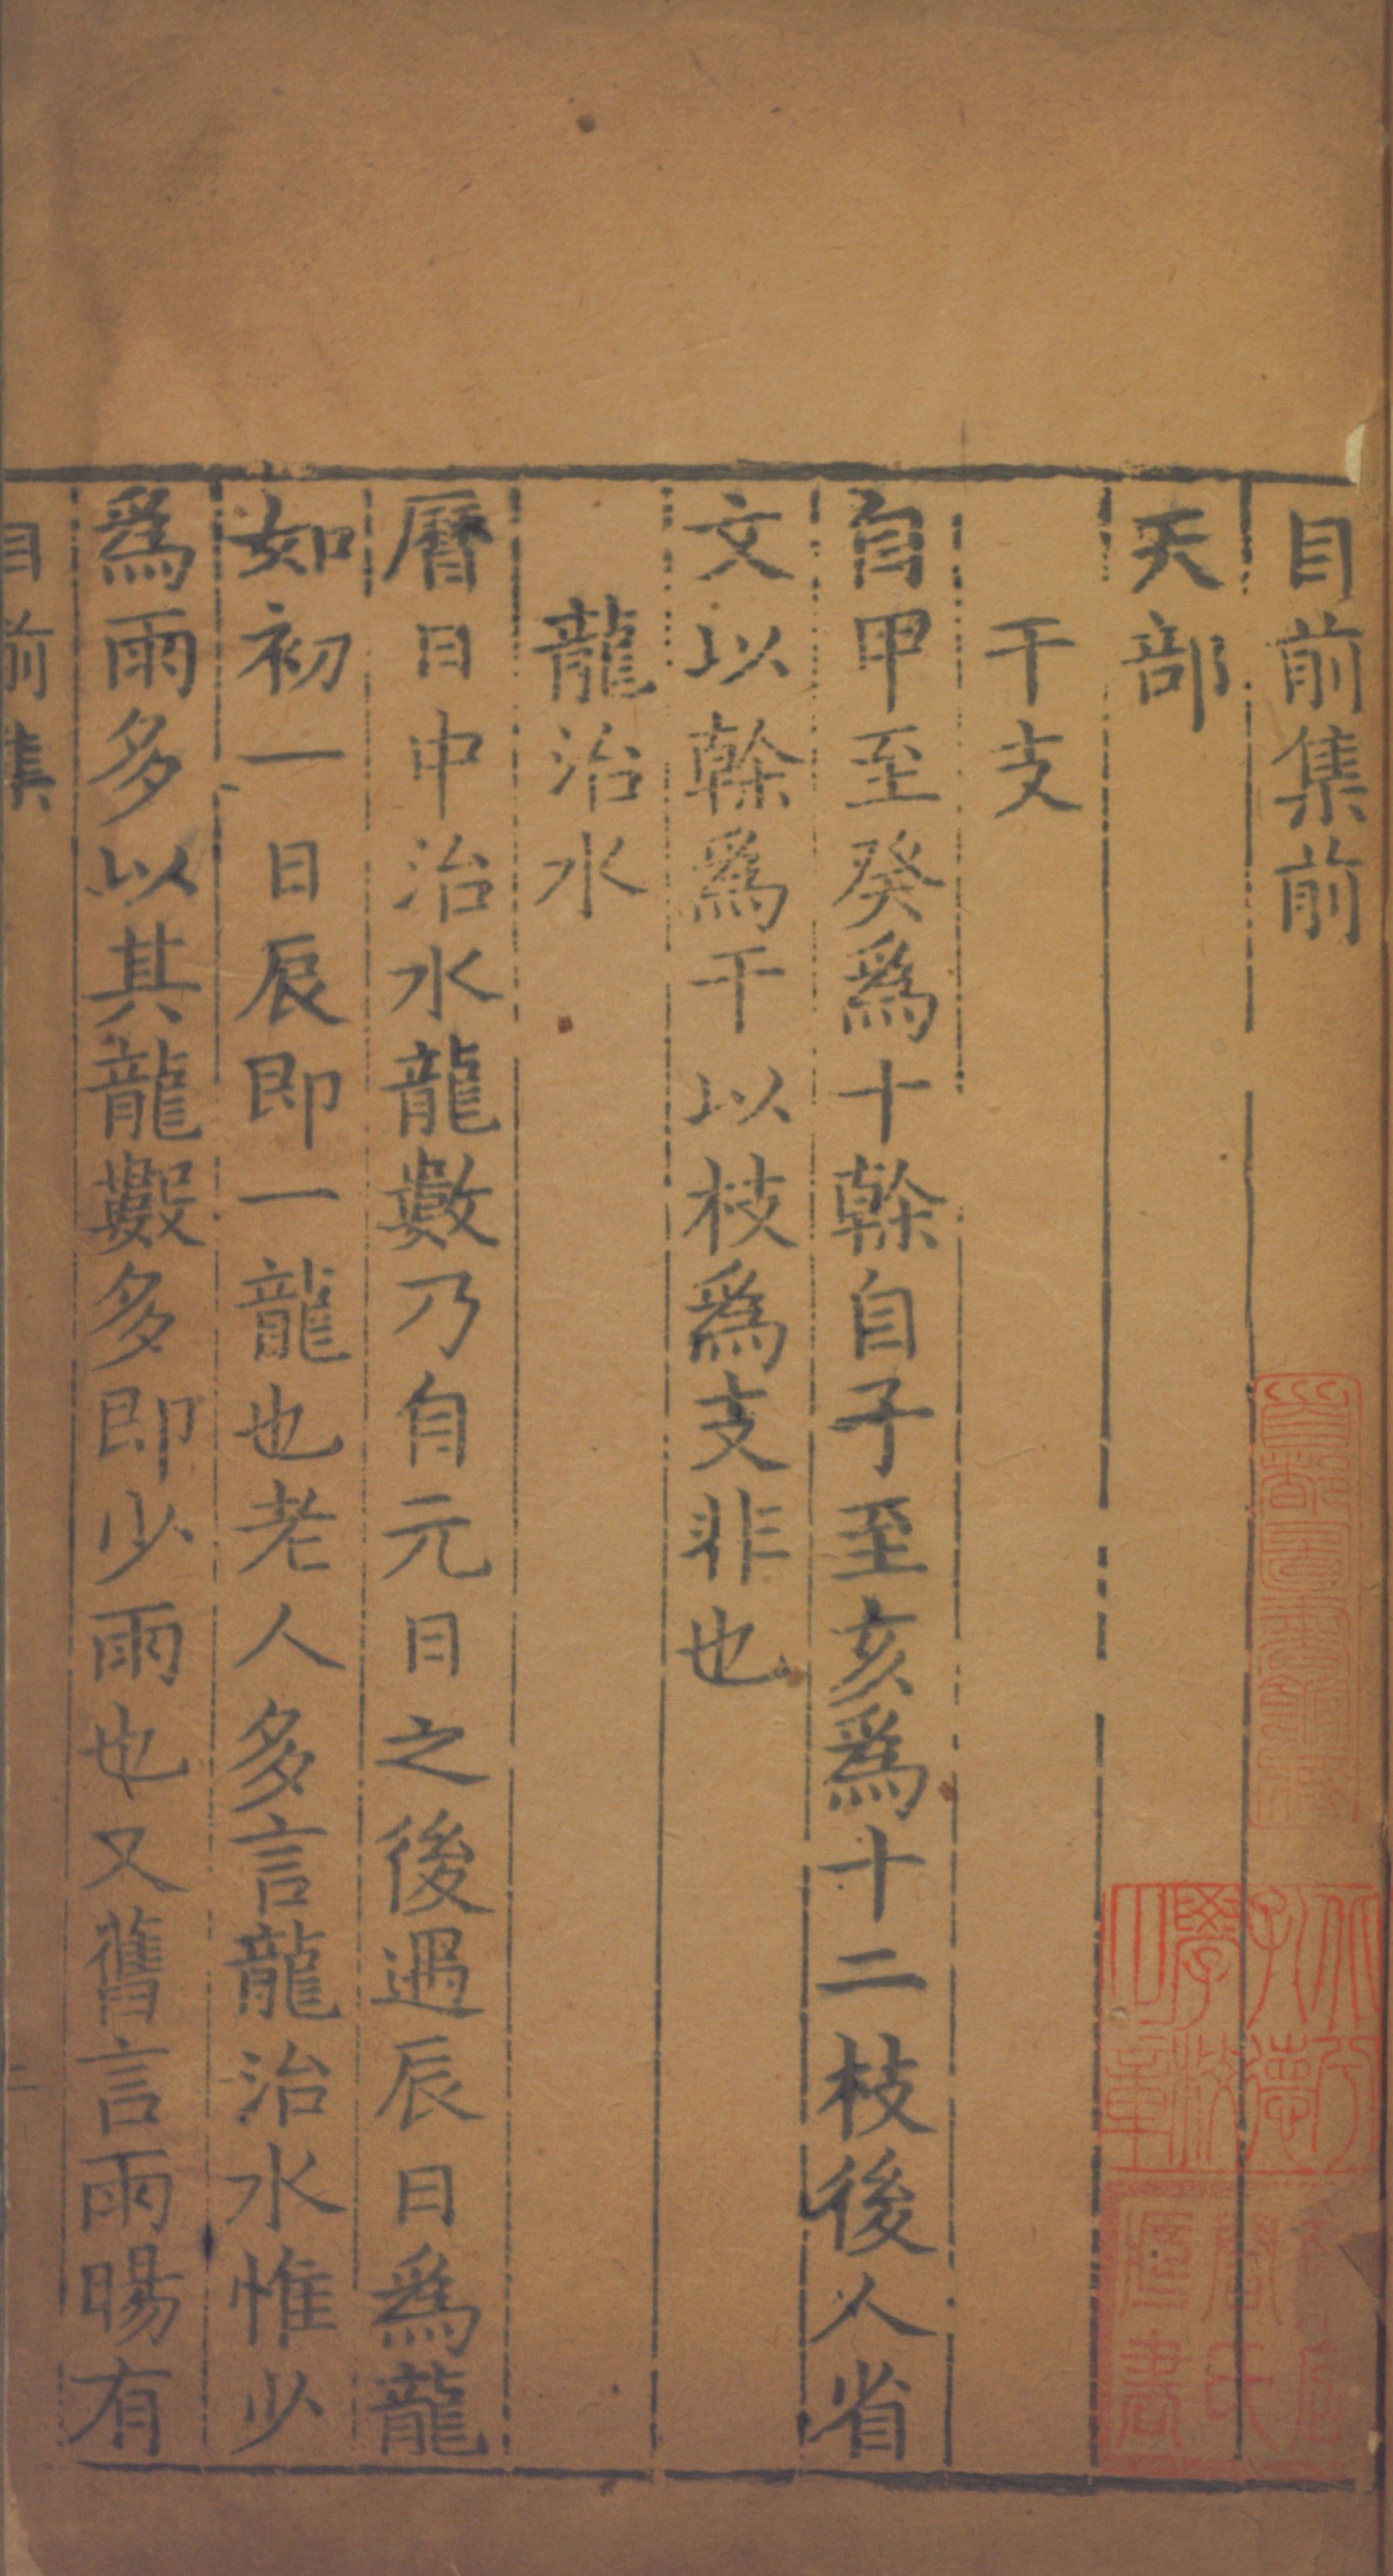 目前集前
天部
干支
自甲至癸爲十榦自子至亥爲十二枝後人省
文以榦爲干以枝爲支非也
龍治水
曆日中治水龍數乃自元日之後遇辰日爲龍
如初一日辰即一龍也老人多言龍治水惟少
爲雨多以其龍數多即少雨也又舊言雨暘有
目前集
藏書